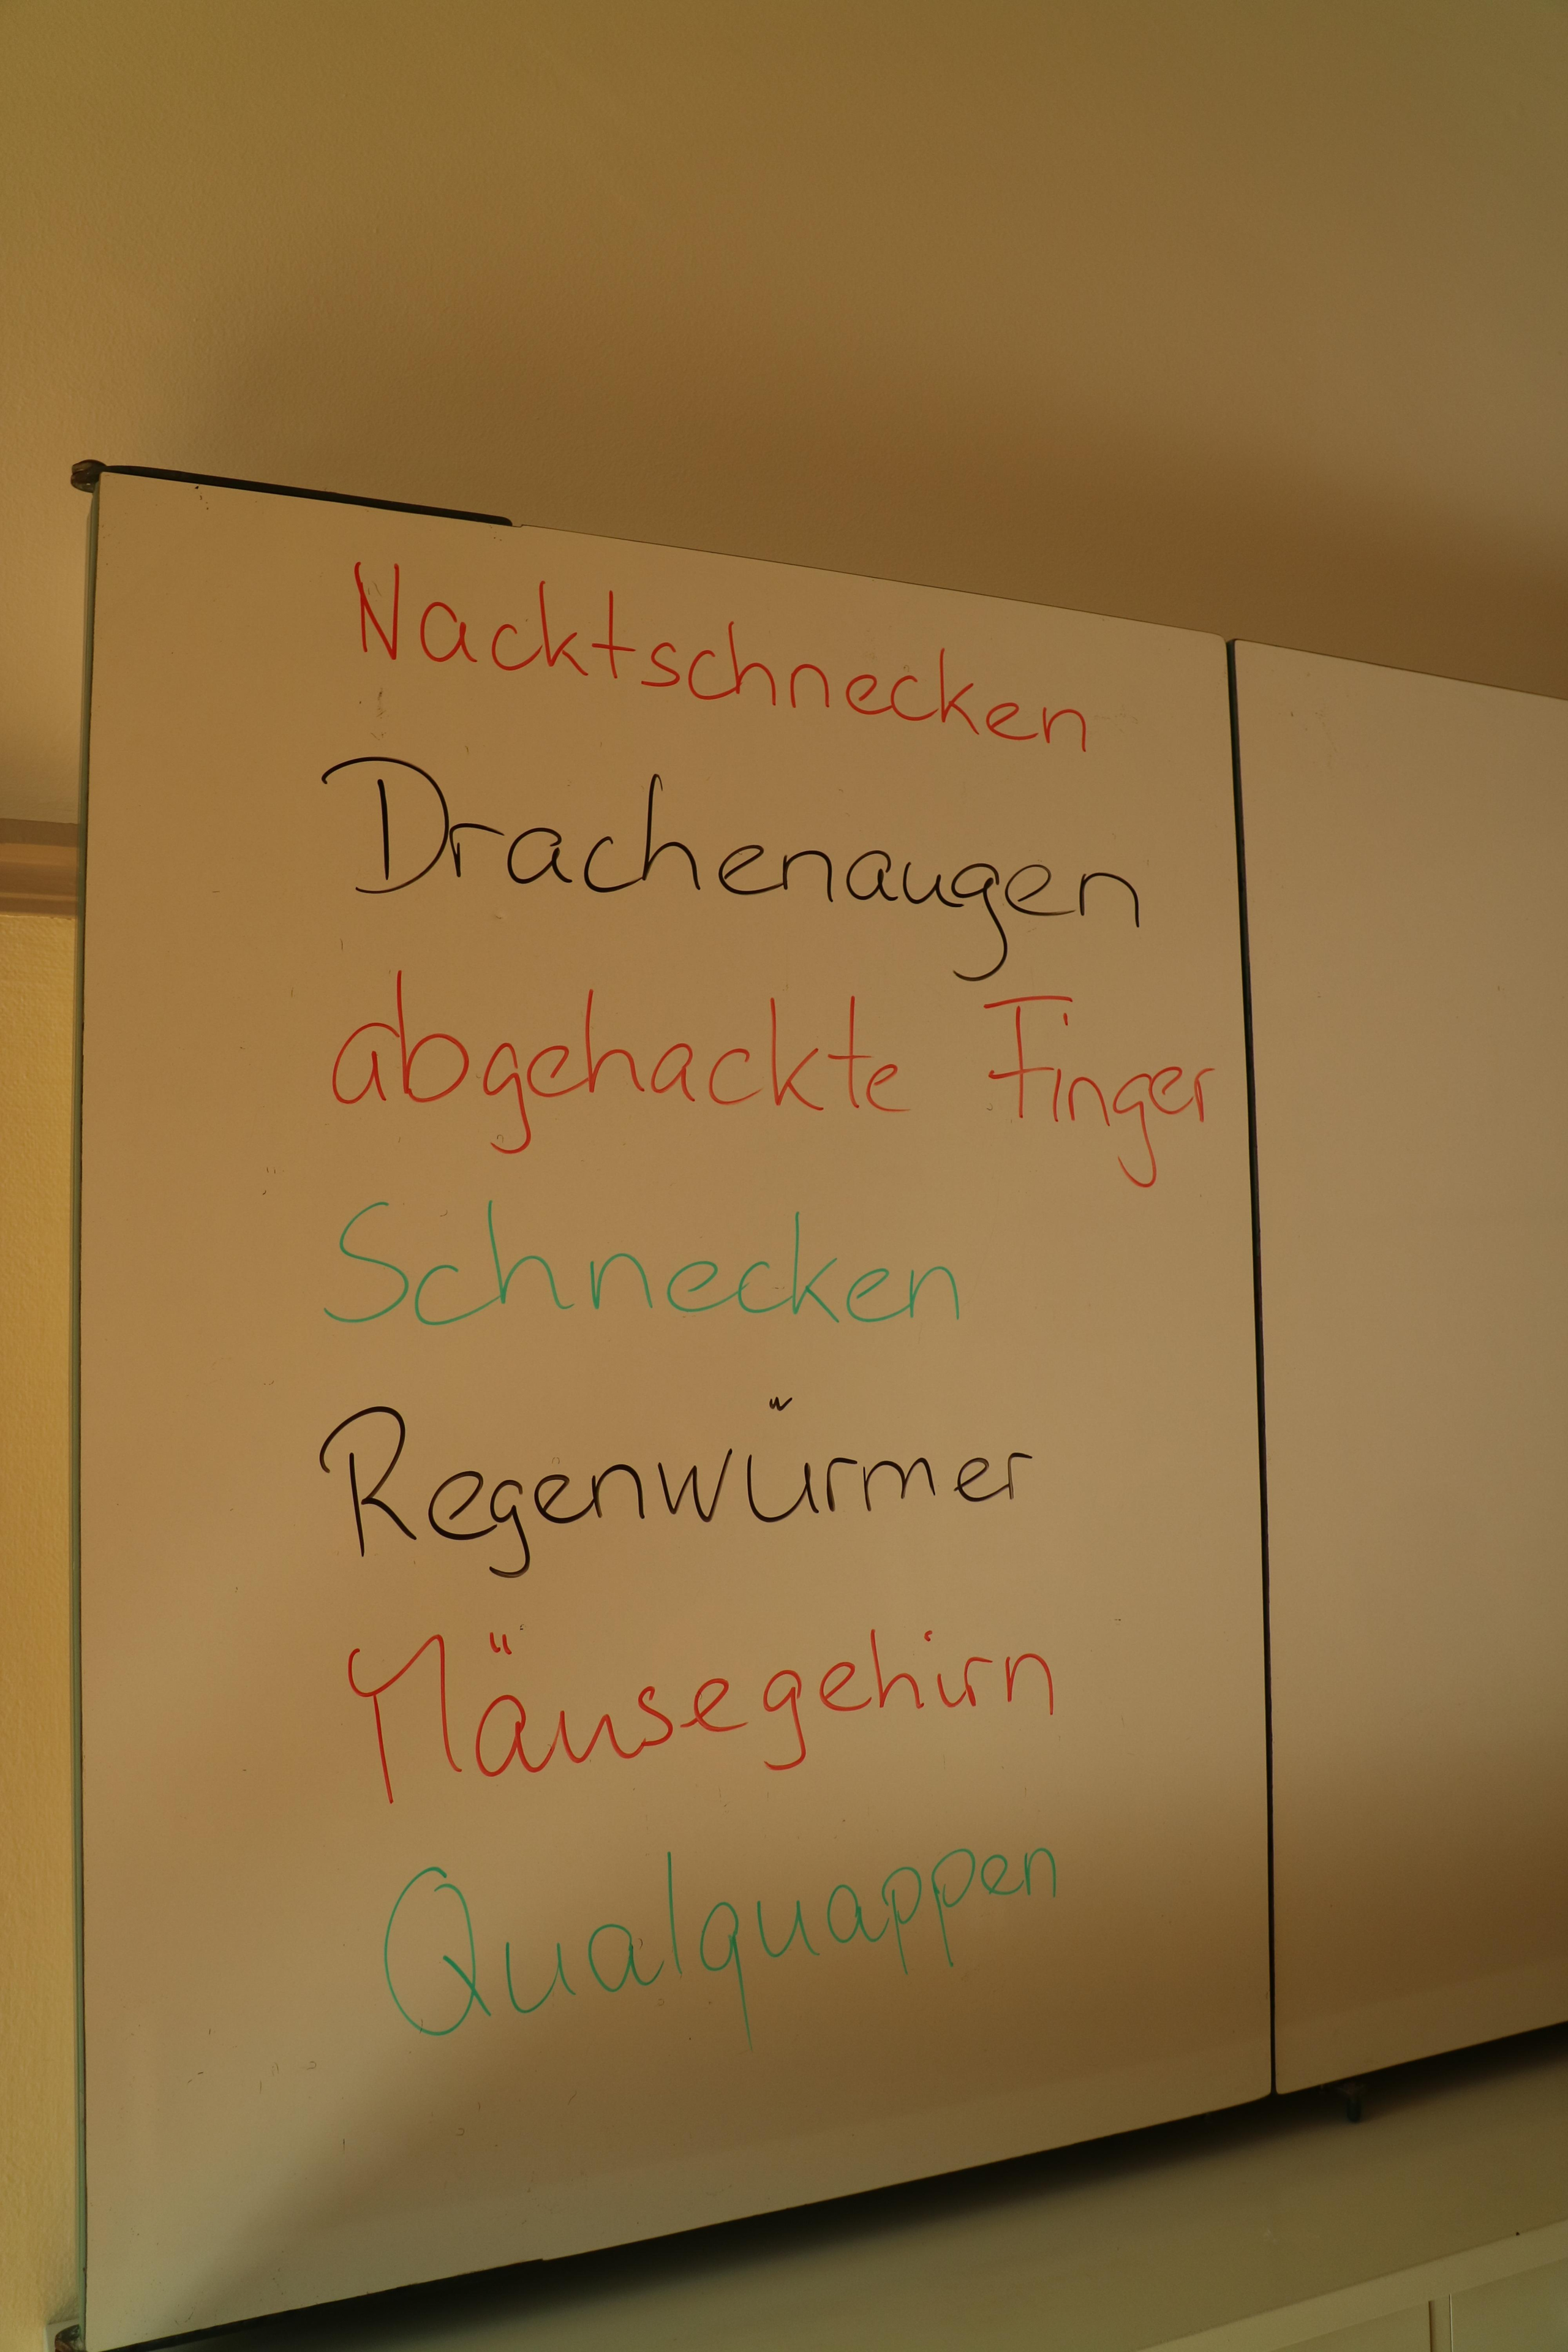 Nacktschnecken
Drachenaugen
abgehackte Finger
Schnecken
Regenwürmer
Mäusegehirn
Qualquappen